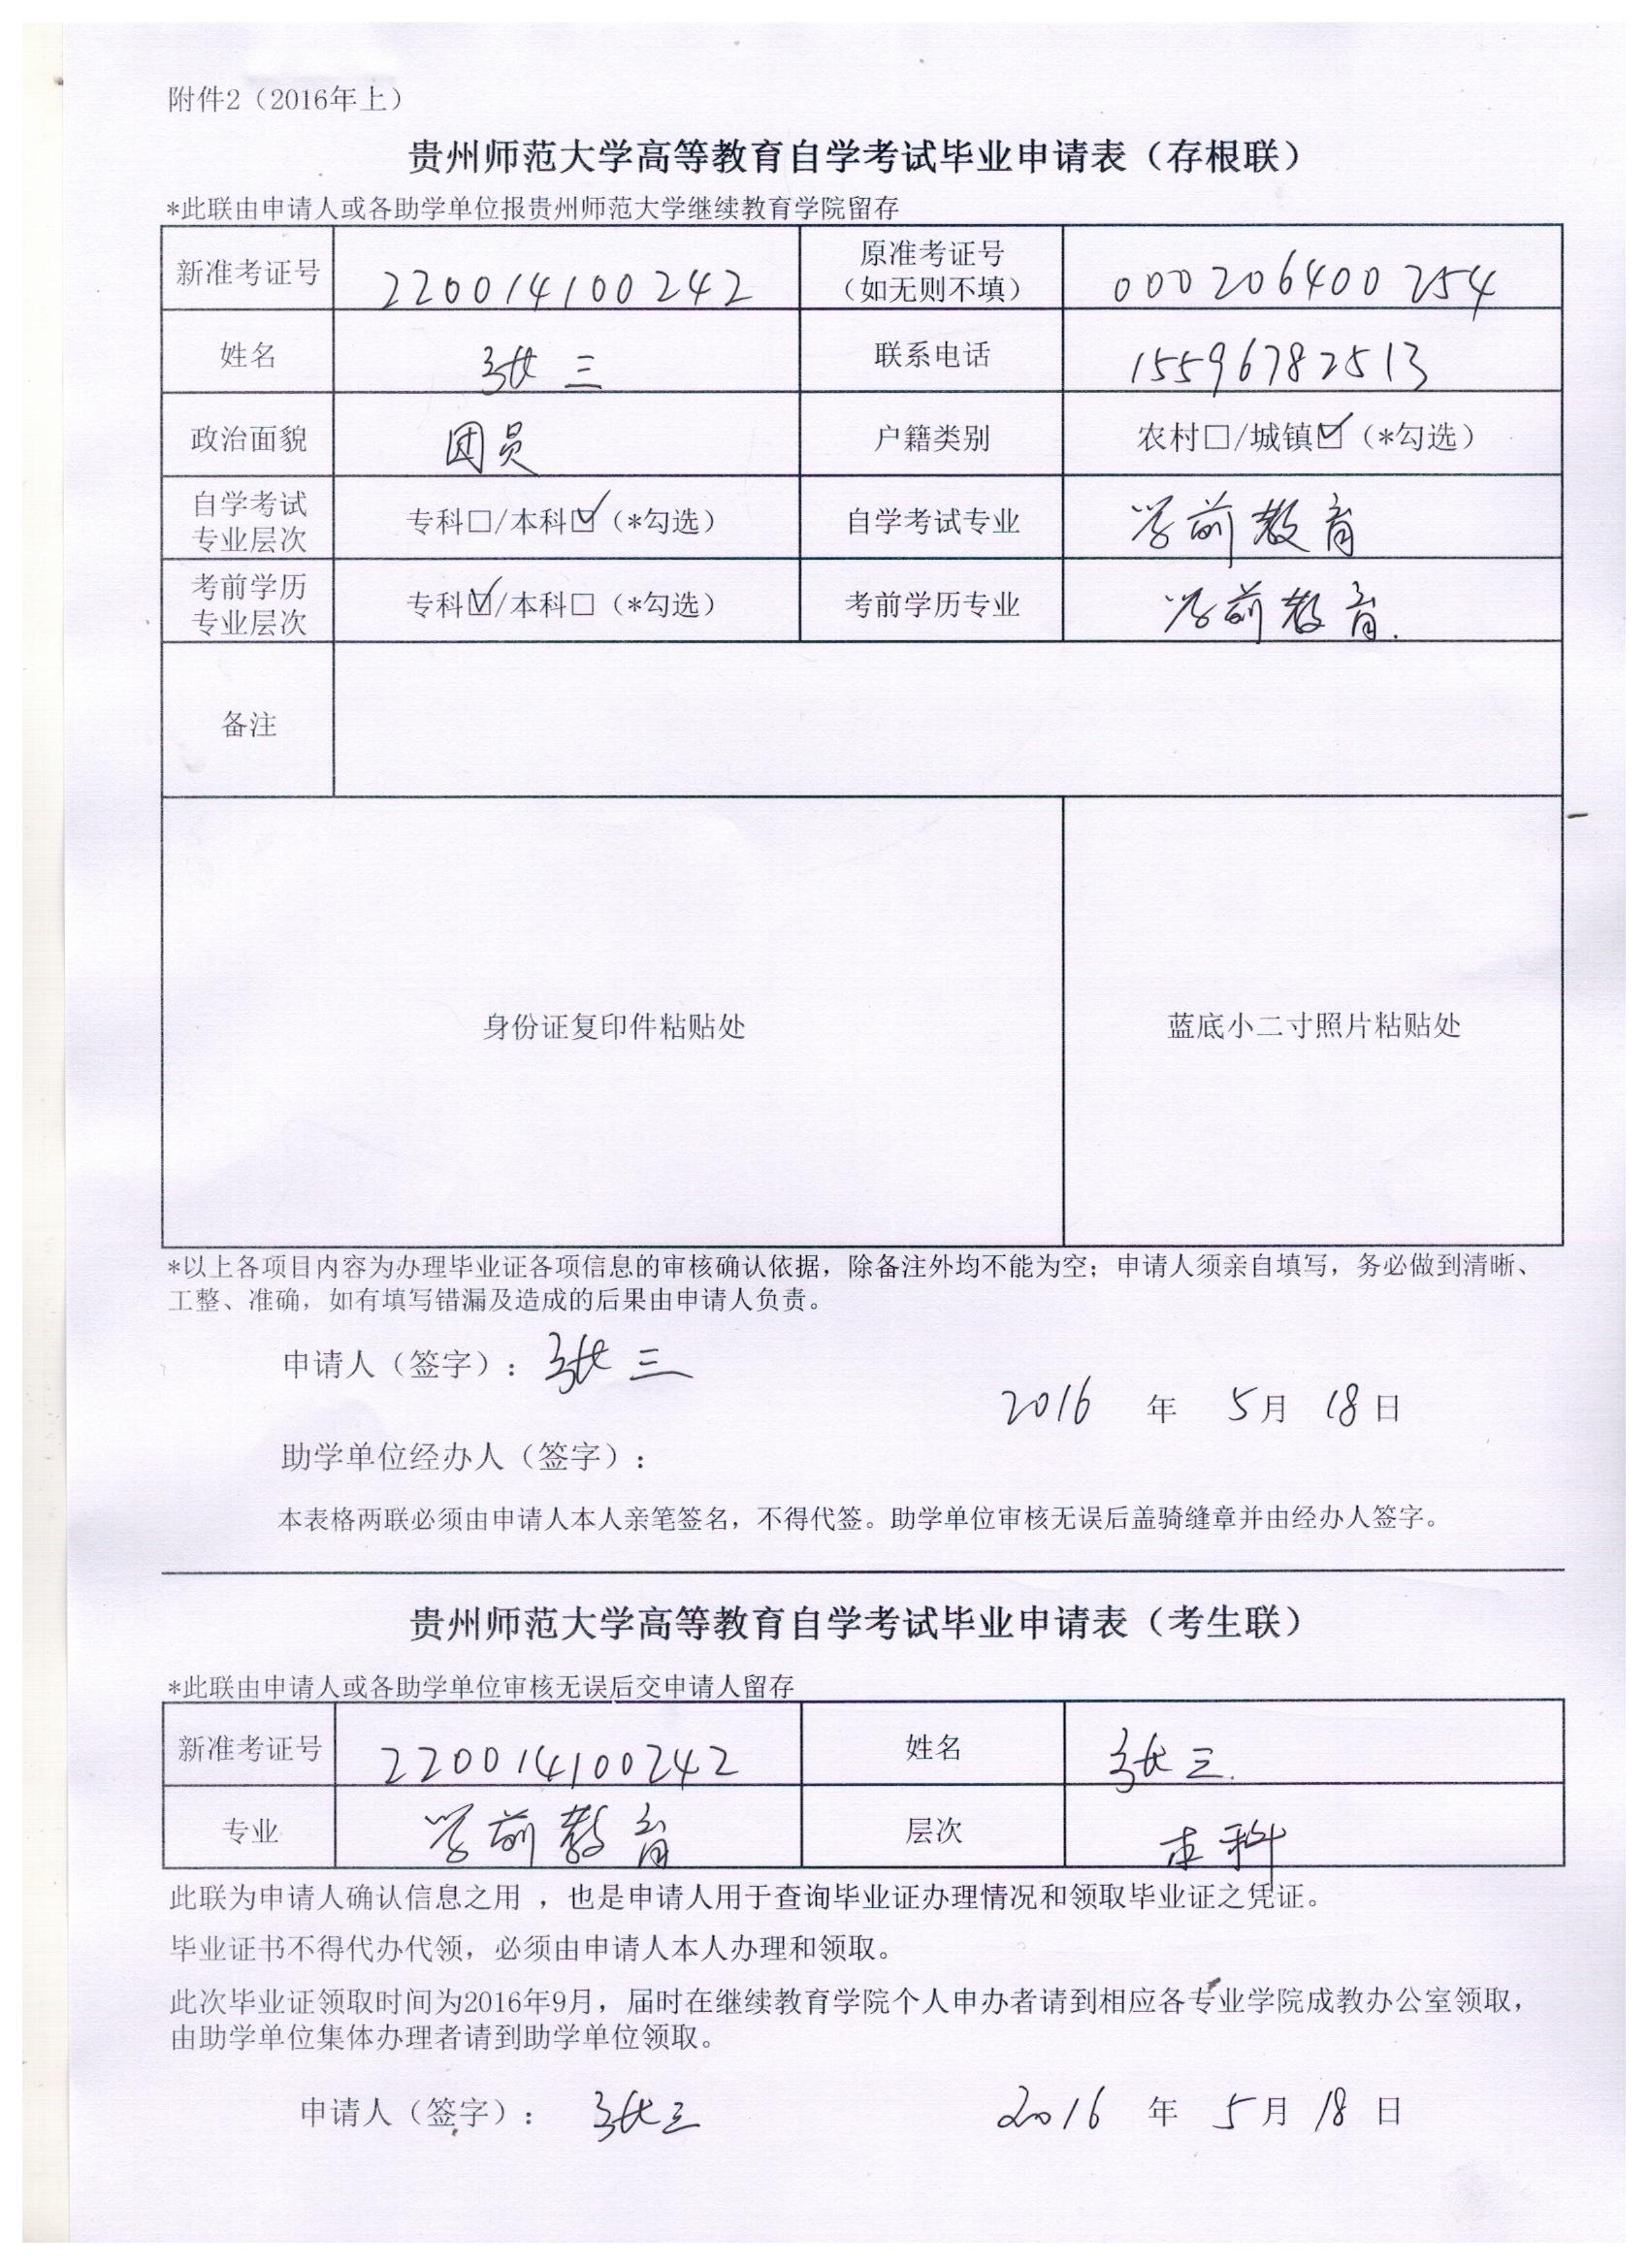 附件2（2016年上）
贵州师范大学高等教育自学考试毕业申请表（存根联）
*此联由申请人或各助学单位报贵州师范大学继续教育学院留存
新准考证号 220014100242 原准考证号（如无则不填） 000206400254
姓名 张三 联系电话 15596782513
政治面貌 团员 户籍类别 农村□/城镇☑（*勾选）
自学考试专业层次 专科□/本科☑（*勾选） 自学考试专业 学前教育
考前学历专业层次 专科☑/本科□（*勾选） 考前学历专业 学前教育.
备注
身份证复印件粘贴处 蓝底小二寸照片粘贴处
*以上各项目内容为办理毕业证各项信息的审核确认依据，除备注外均不能为空；申请人须亲自填写，务必做到清晰、
工整、准确，如有填写错漏及造成的后果由申请人负责。
申请人（签字）：张三
2016 年 5月 18日
助学单位经办人（签字）：
本表格两联必须由申请人本人亲笔签名，不得代签。助学单位审核无误后盖骑缝章并由经办人签字。
贵州师范大学高等教育自学考试毕业申请表（考生联）
*此联由申请人或各助学单位审核无误后交申请人留存
新准考证号 220014100242 姓名 张三.
专业 学前教育 层次 本科
此联为申请人确认信息之用 ，也是申请人用于查询毕业证办理情况和领取毕业证之凭证。
毕业证书不得代办代领，必须由申请人本人办理和领取。
此次毕业证领取时间为2016年9月，届时在继续教育学院个人申办者请到相应各专业学院成教办公室领取，
由助学单位集体办理者请到助学单位领取。
申请人（签字）： 张三 2016 年 5月 18 日